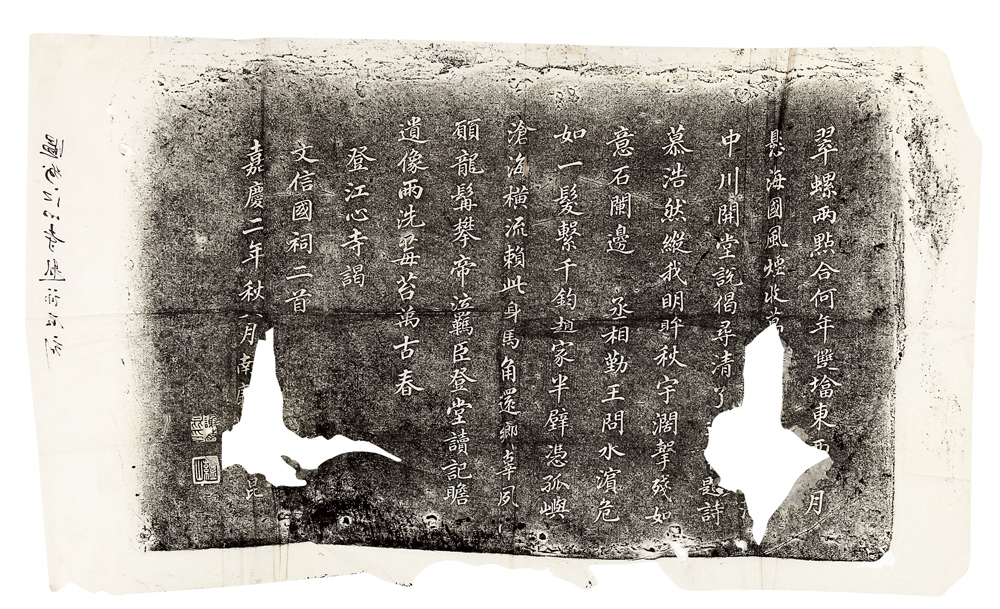 翠螺兩點合何年雙墖東西月
懸海國風煙收萬
中川開堂說偈尋清了是詩
慕浩然縱我明眸秋宇濶擊殘如
意石闌邊 丞相勤王問水濱危
如一髮繫千鈞趙家半壁憑孤嶼
滄海橫流賴此身馬角還鄉
願龍髯攀帝泣羈臣登堂讀記瞻
遺像雨洗莓苔萬古春
登江心寺謁
文信國祠二首
嘉慶二年秋八月南
昆